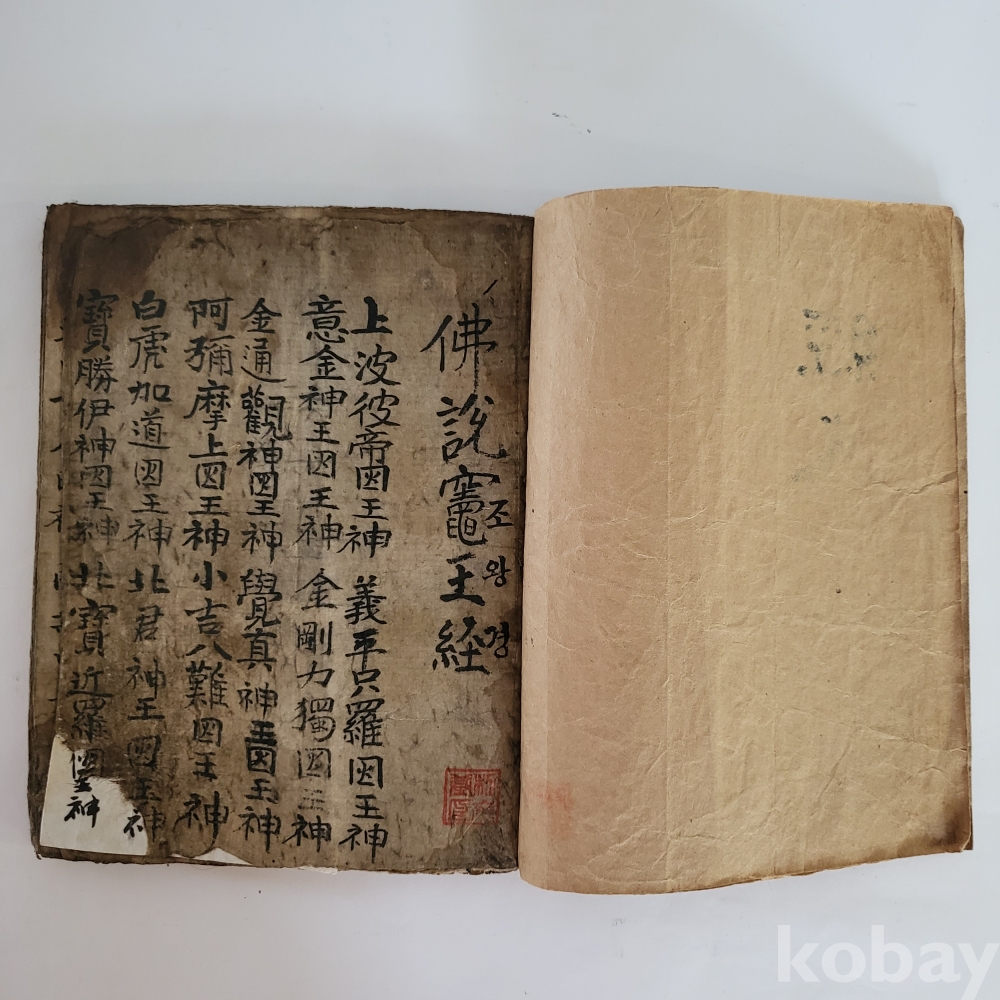 佛說竈王経
조왕경
上波彼帝囸王神 義平只羅囸王神
意金神王囸王神 金剛力獨囸王神
金通觀神囸王神 覺真神王囸王神
阿彌摩上囸王神 小吉八難囸王神
白虎加道囸王神 北君神王囸王神
寶勝伊神囸王神 北寶近羅囸王神
kobay